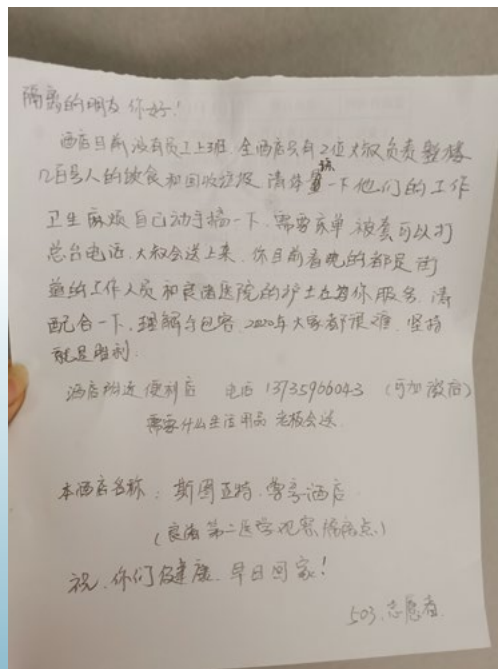 隔离的朋友 你好!
酒店目前没有员工上班. 全酒店只有2位大叔负责整楼
几百号人的饮食和回收垃圾 请体谅一下他们的工作
卫生麻烦自己动手搞一下. 需要床单 被套可以打
总台电话. 大叔会送上来. 你目前看见的都是街
道的工作人员和良渚医院的护士在为你服务. 请
配合一下. 理解与包容. 2020年大家都很难. 坚持
就是胜利.
酒店附近 便利店 电话 13735966043 (可加微信)
需要什么生活用品 老板会送.
本酒店名称: 斯图亚特.尊号酒店
(良渚第二医学观察隔离点)
祝.你们健康.早日回家!
503.志愿者.